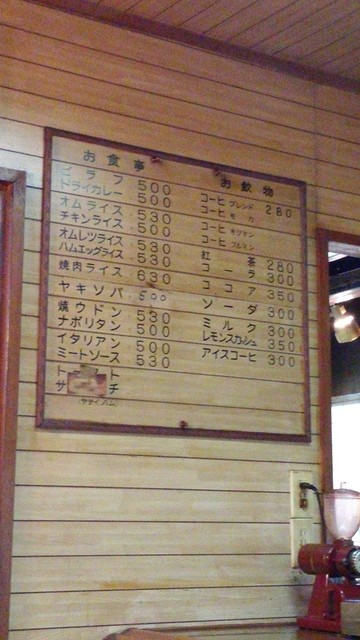 お食事
ピラフ 500
ドライカレー 500
オムライス 530
チキンライス 500
オムレツライス 530
ハムエッグライス 530
焼肉ライス 630
ヤキソバ 500
焼ウドン 530
ナポリタン 500
イタリアン 500
ミートソース 530
ト ト
サ チ
お飲物
コーヒ ブレンド 280
コーヒ モカ
コーヒ キリマン
コーヒ ブルマン
紅茶 280
コーラ 300
ココア 350
ソーダ 300
ミルク 300
レモンスカッシュ 350
アイスコーヒ 300